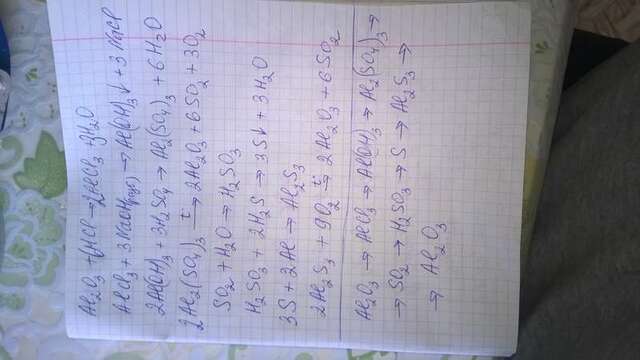 Al₂O₃ + 6HCl → 2AlCl₃ + 3H₂O
AlCl₃ + 3NaOH → Al(OH)₃↓ + 3NaCl
2Al(OH)₃ + 3H₂SO₄ → Al₂(SO₄)₃ + 6H₂O
2Al₂(SO₄)₃ —t→ 2Al₂O₃ + 6SO₂ + 3O₂
SO₂ + H₂O → H₂SO₃
H₂SO₃ + 2H₂S → 3S↓ + 3H₂O
3S + 2Al → Al₂S₃
2Al₂S₃ + 9O₂ —t→ 2Al₂O₃ + 6SO₂
Al₂O₃ → AlCl₃ → Al(OH)₃ → Al₂(SO₄)₃ →
→ SO₂ → H₂SO₃ → S → Al₂S₃ →
→ Al₂O₃